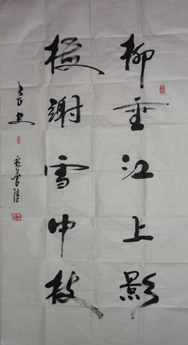 柳垂江上影
梅謝雪中枝